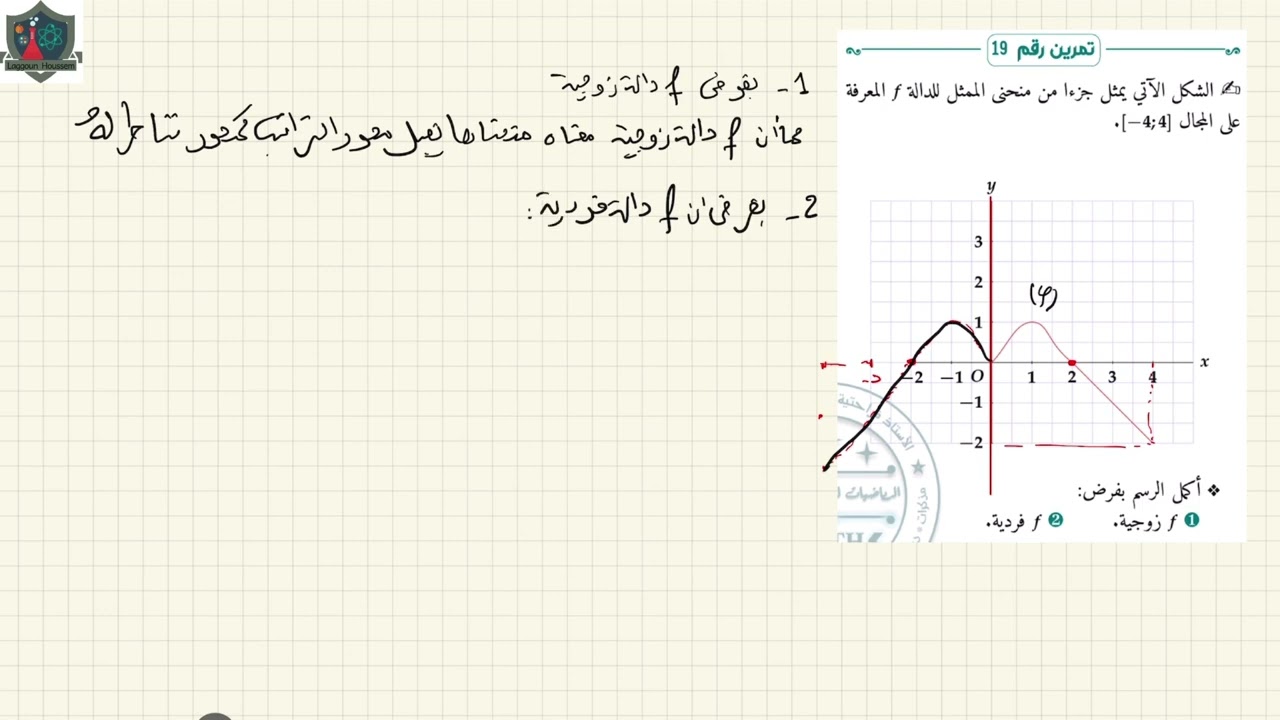 Laggoun Houssem
تمرين رقم 19
الشكل الآتي يمثل جزءا من منحنى الممثل للدالة f المعرفة
على المجال [−4;4].
y
3
2
1
(φ)
−2 −1 O 1 2 3 4 x
−1
−2
❖ أكمل الرسم بفرض:
1 f زوجية. 2 f فردية.
1- بفرض f دالة زوجية
بما أن f دالة زوجية معناه منحناها يقبل محور التراتيب كمحور تناظر له
2- بفرض ان f دالة فردية: